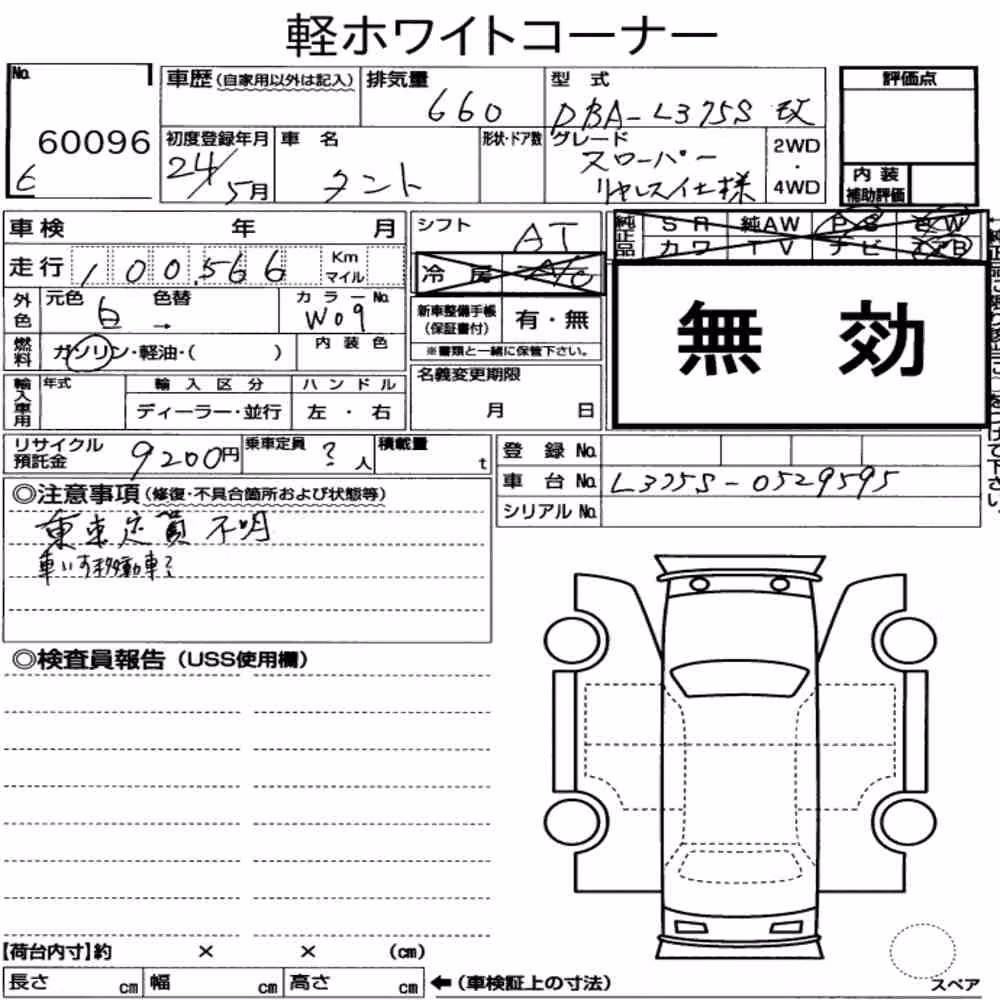 軽ホワイトコーナー
No. 60096
6
車歴(自家用以外は記入)
排気量 660
型式 DBA-L375S 改
評価点
初度登録年月 24/5月
車名 タント
形状・ドア数
グレード スローパー
リヤレス仕様
2WD
・
4WD
内装
補助評価
車検 年 月
シフト AT
純正品 SR 純AW PS PW
カワ TV ナビ エアB
走行 100,566 Km マイル
冷房 A/C
無効
外色 元色 白 色替 → カラーNo. W09
新車整備手帳
(保証書付) 有・無
※書類と一緒に保管下さい。
燃料 ガソリン・軽油・( ) 内装色
輸入車用 年式 輸入区分 ハンドル
ディーラー・並行 左・右
名義変更期限
月 日
リサイクル
預託金 9200円
乗車定員 ? 人
積載量 t
登録No.
車台No. L375S-0529595
シリアルNo.
◎注意事項(修復・不具合箇所および状態等)
乗車定員不明
車いす移動車?
◎検査員報告(USS使用欄)
【荷台内寸】約 × × (cm)
長さ cm 幅 cm 高さ cm ←(車検証上の寸法)
スペア